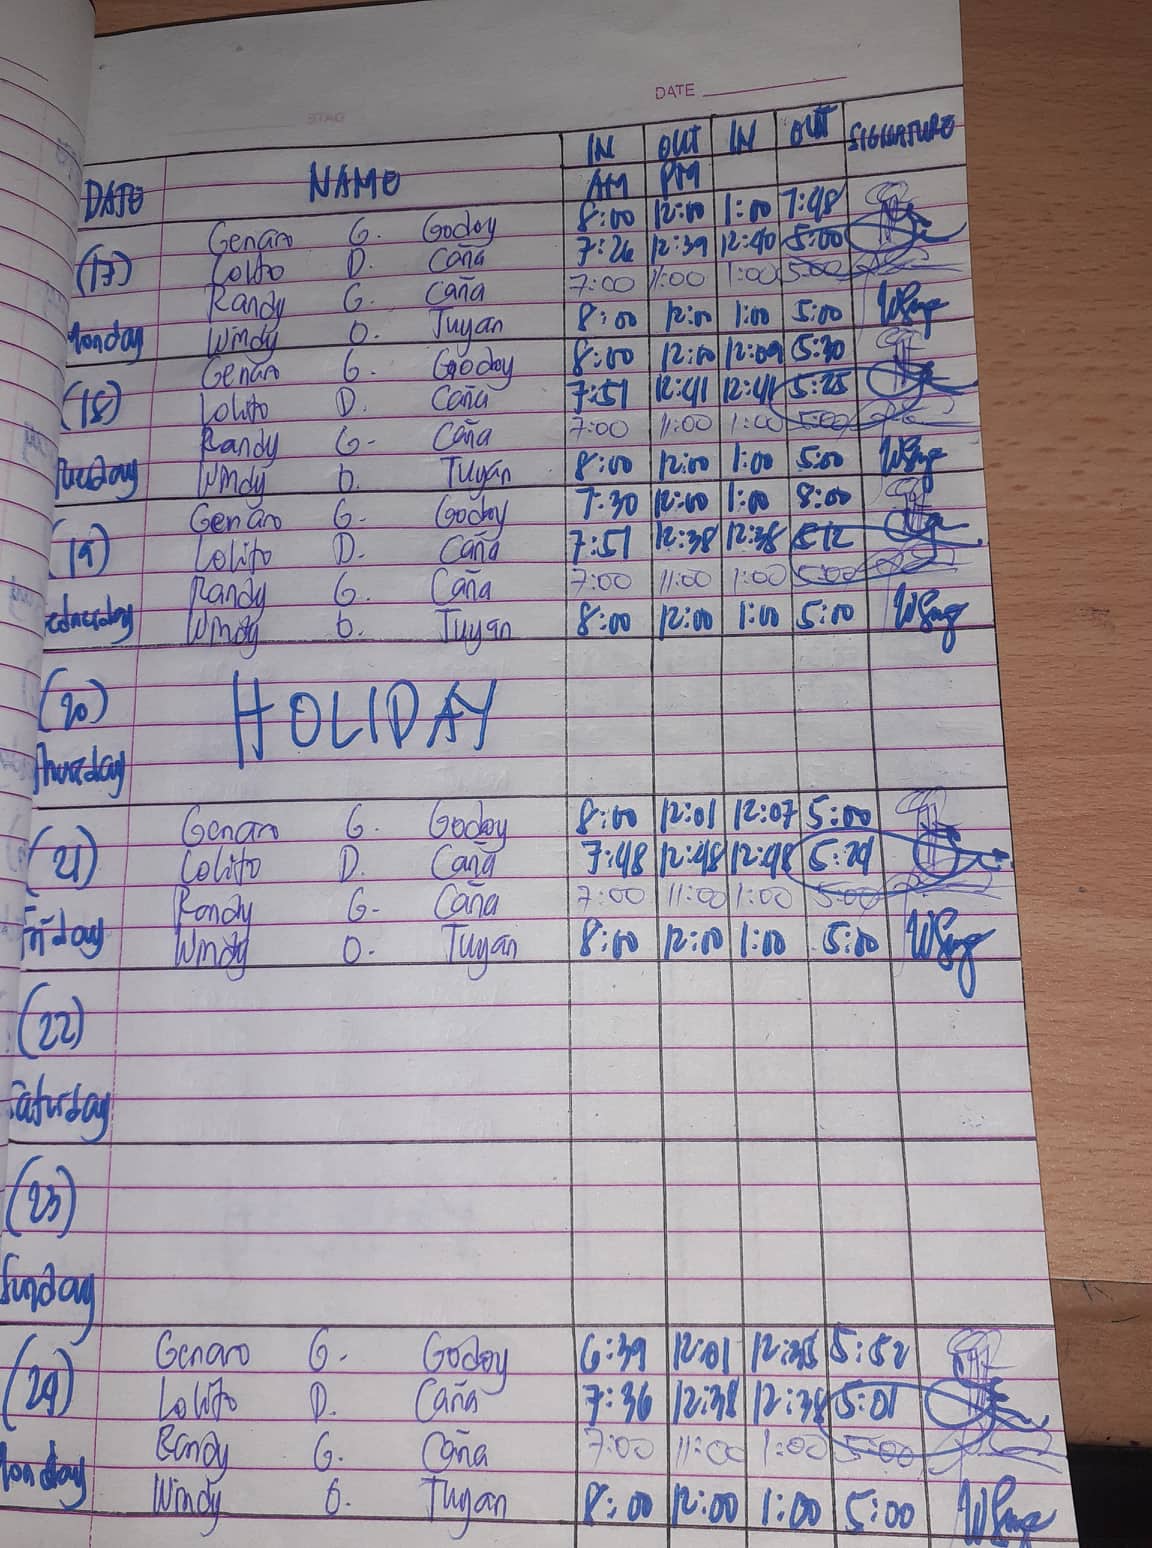 DATE
DATE NAME IN OUT IN OUT SIGNATURE
AM PM
Genaro G. Godoy 8:00 12:00 1:00 7:48
(17) Lolito D. Caña 7:26 12:39 12:40 5:00
Randy G. Caña 7:00 11:00 1:00 5:00
Monday Windy O. Tuyan 8:00 12:00 1:00 5:00
Genaro G. Godoy 8:00 12:00 12:09 5:30
(18) Lolito D. Caña 7:51 12:41 12:41 5:25
Randy G. Caña 7:00 11:00 1:00 5:00
Tuesday Windy O. Tuyan 8:00 12:00 1:00 5:00
Genaro G. Godoy 7:30 12:00 1:00 8:00
(19) Lolito D. Caña 7:51 12:38 12:38 5:12
Randy G. Caña 7:00 11:00 1:00 5:00
Wednesday Windy O. Tuyan 8:00 12:00 1:00 5:00
(20) HOLIDAY
Thursday
Genaro G. Godoy 8:00 12:01 12:07 5:00
(21) Lolito D. Caña 7:48 12:48 12:48 5:29
Randy G. Caña 7:00 11:00 1:00 5:00
Friday Windy O. Tuyan 8:00 12:00 1:00 5:00
(22)
Saturday
(23)
Sunday
Genaro G. Godoy 6:39 12:01 12:35 5:52
(24) Lolito D. Caña 7:36 12:38 12:38 5:01
Randy G. Caña 7:00 11:00 1:00 5:00
Monday Windy O. Tuyan 8:00 12:00 1:00 5:00